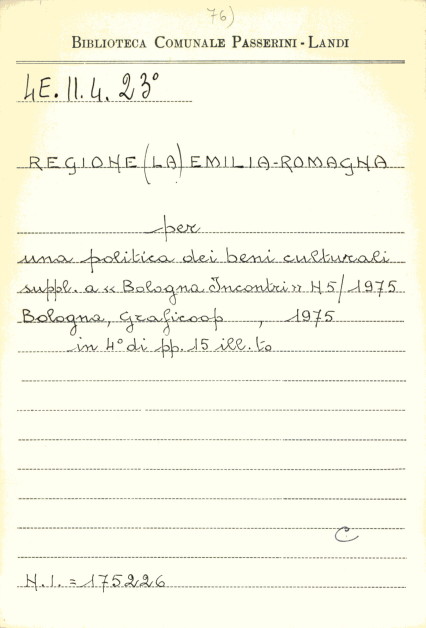 76)
BIBLIOTECA COMUNALE PASSERINI-LANDI
4E. II. 4. 23°
REGIONE (LA) EMILIA-ROMAGNA
per
una politica dei beni culturali
suppl. a «Bologna Incontri» N5/1975
Bologna, Graficoop, 1975
in 4° di pp. 15 ill.to
C
N.I. = 175226